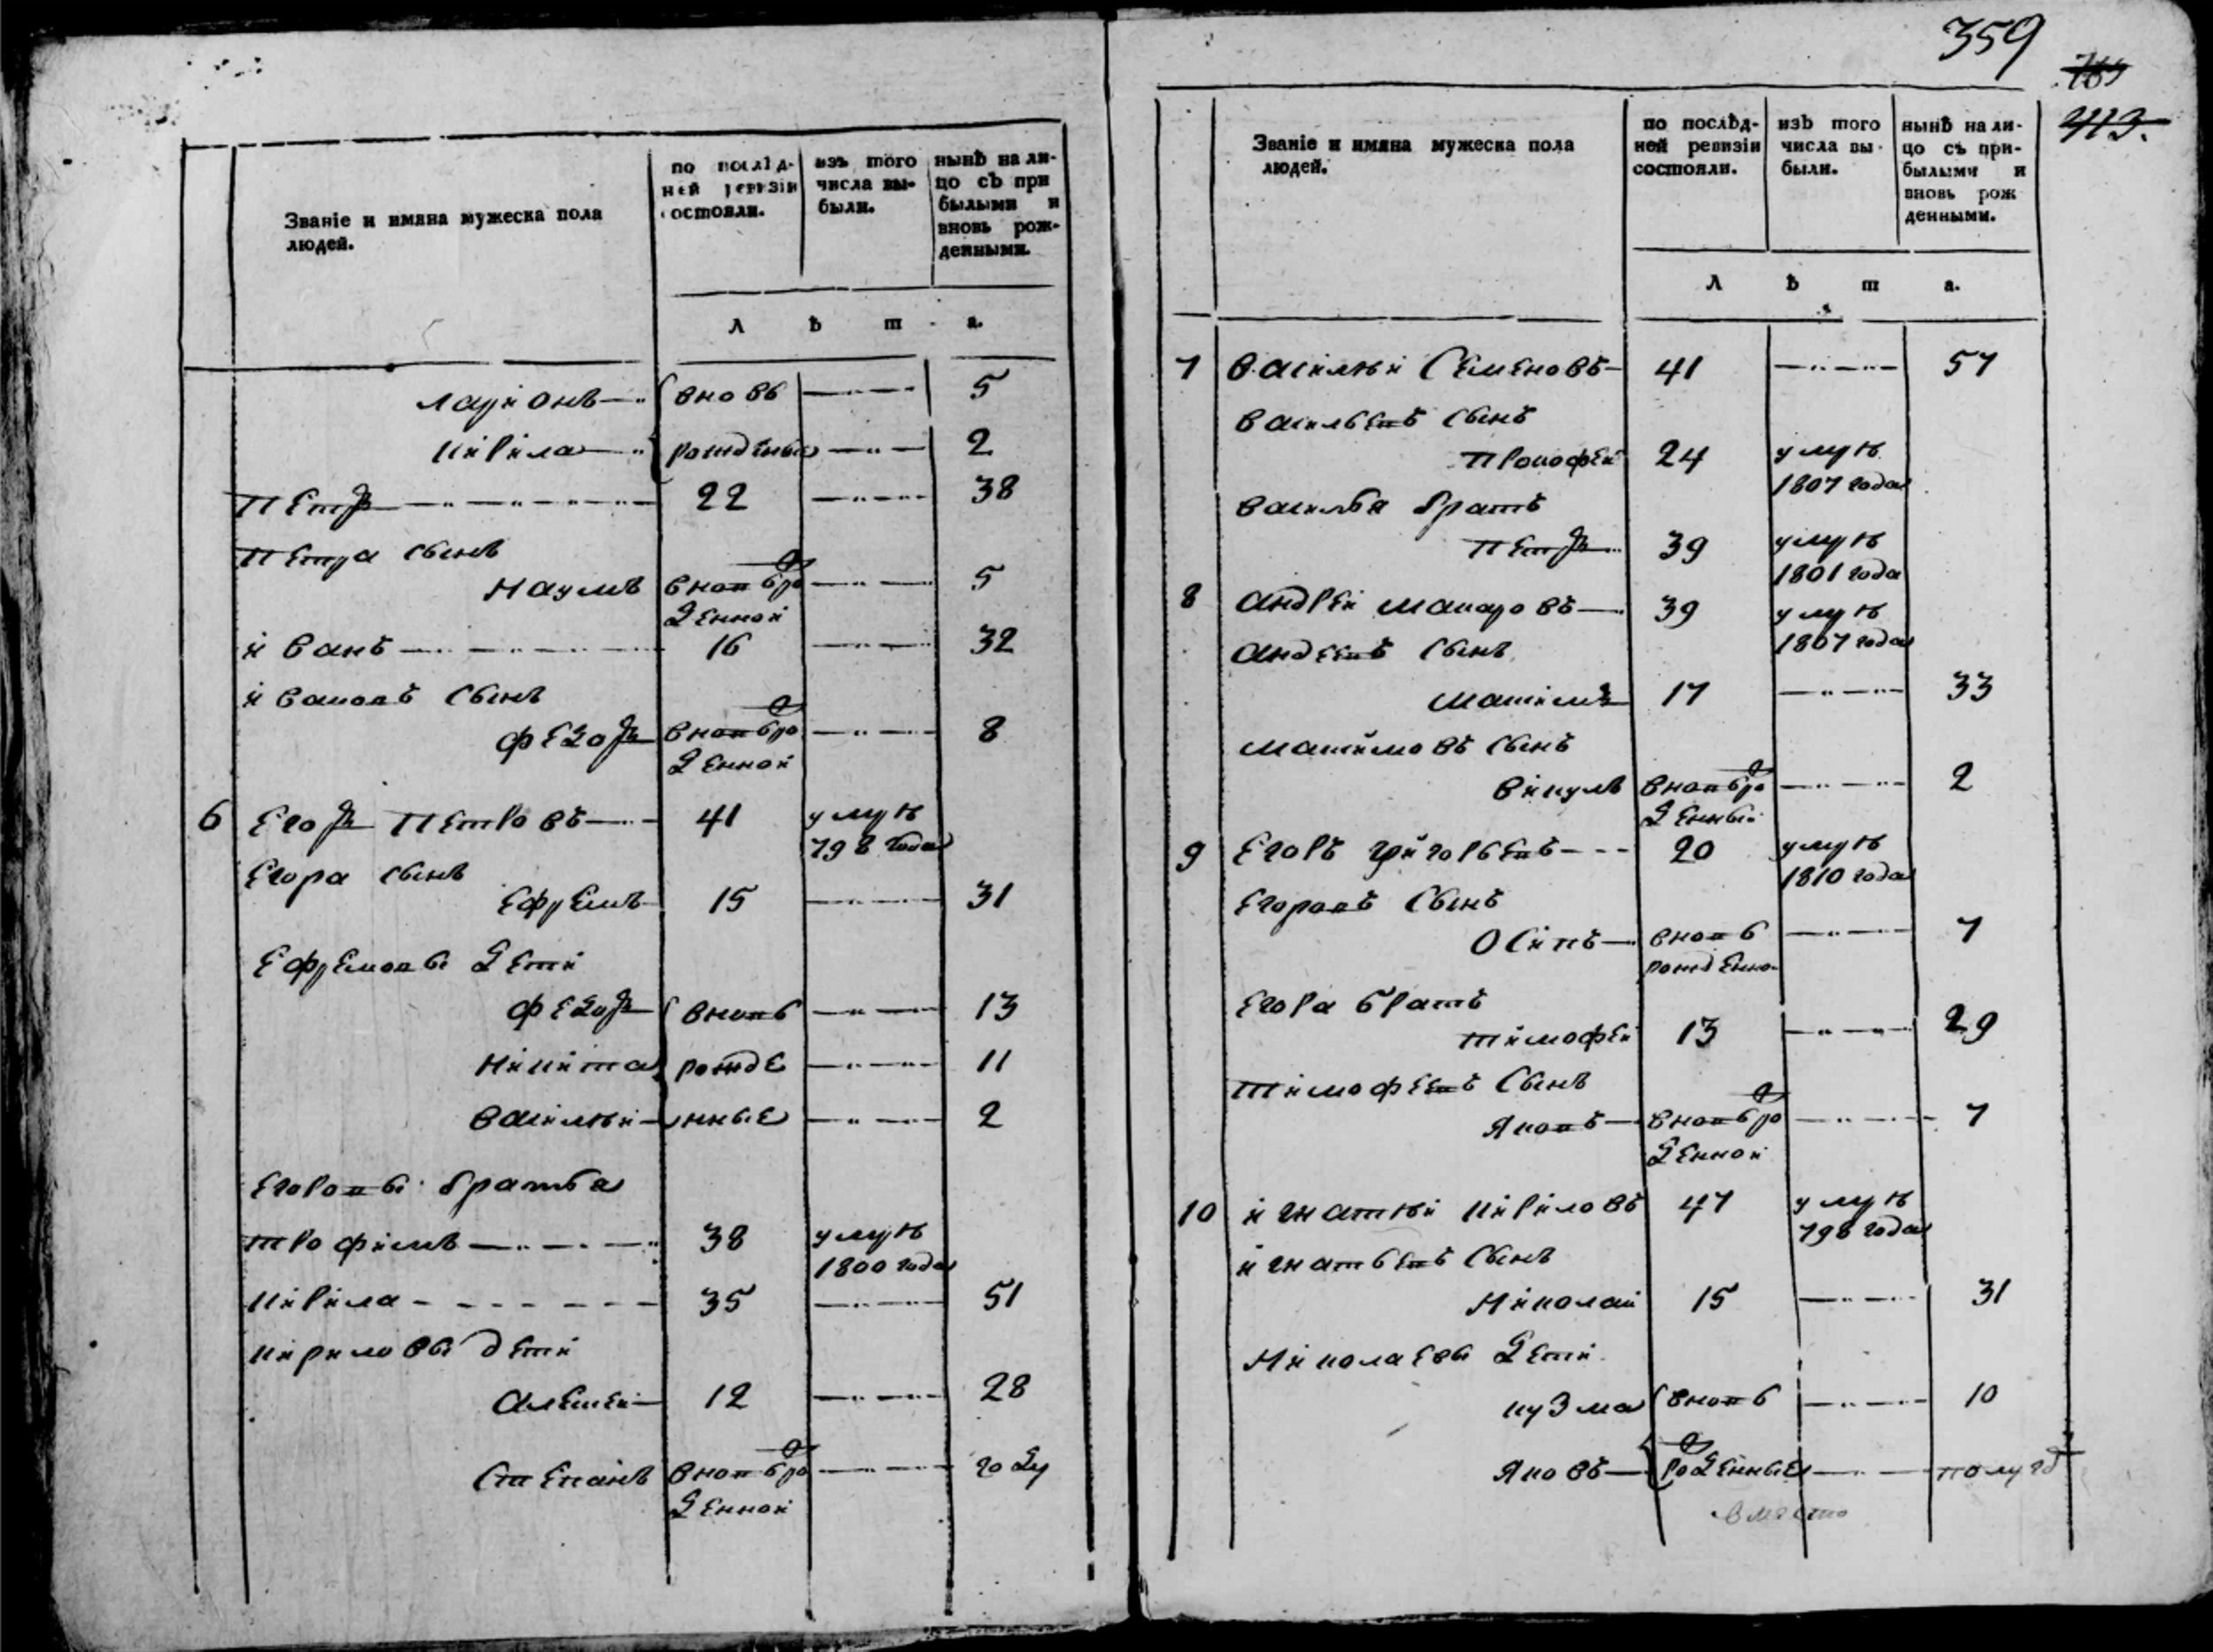 Званіе и имяна мужеска пола
людей.
по послѣд-
ней ревизіи
состояли.
изъ того
числа вы-
были.
нынѣ на ли-
цо съ при
былыми и
вновь рож-
денными.
Л ѣ т а.
Ларионъ вновь 5
Кирила рождѣнны 2
Петръ 22 38
Петра сынъ
Наумъ вновь рож 5
денной
Иванъ 16 32
Ивановъ сынъ
Федоръ вновь рож 8
денной
6 Егоръ Петровъ 41 умре
798 года
Егора сынъ
Ефремъ 15 31
Ефремовы дети
Федоръ вновь 13
Никита рожде 11
Василей нные 2
Егоровы братья
Трофимъ 38 умре
1800 года
Кирила 35 51
Кириловы дети
Алексей 12 28
Степанъ вновь рож году
денной
359
413.
Званіе и имяна мужеска пола
людей.
по послѣд-
ней ревизіи
состояли.
изъ того
числа вы-
были.
нынѣ на ли-
цо съ при-
былыми и
вновь рож
денными.
Л ѣ т а.
7 Василей Семеновъ 41 57
Васильевъ сынъ
Прокофей 24 умре
1807 года
Василья братъ
Петръ 39 умре
1801 года
8 Андрей Макаровъ 39 умре
1807 года
Андреевъ сынъ
Максимъ 17 33
Максимовъ сынъ
Викулъ вновь рож 2
денный
9 Егоръ Григорьевъ 20 умре
1810 года
Егоровъ сынъ
Осипъ вновь 7
рожденно
Егора братъ
Тимофей 13 29
Тимофеевъ сынъ
Яковъ вновь рож 7
денной
10 Игнатей Кириловъ 47 умре
798 года
Игнатьевъ сынъ
Николай 15 31
Николаевы дети
Кузма вновь 10
Яковъ рожденные полугод
вместо